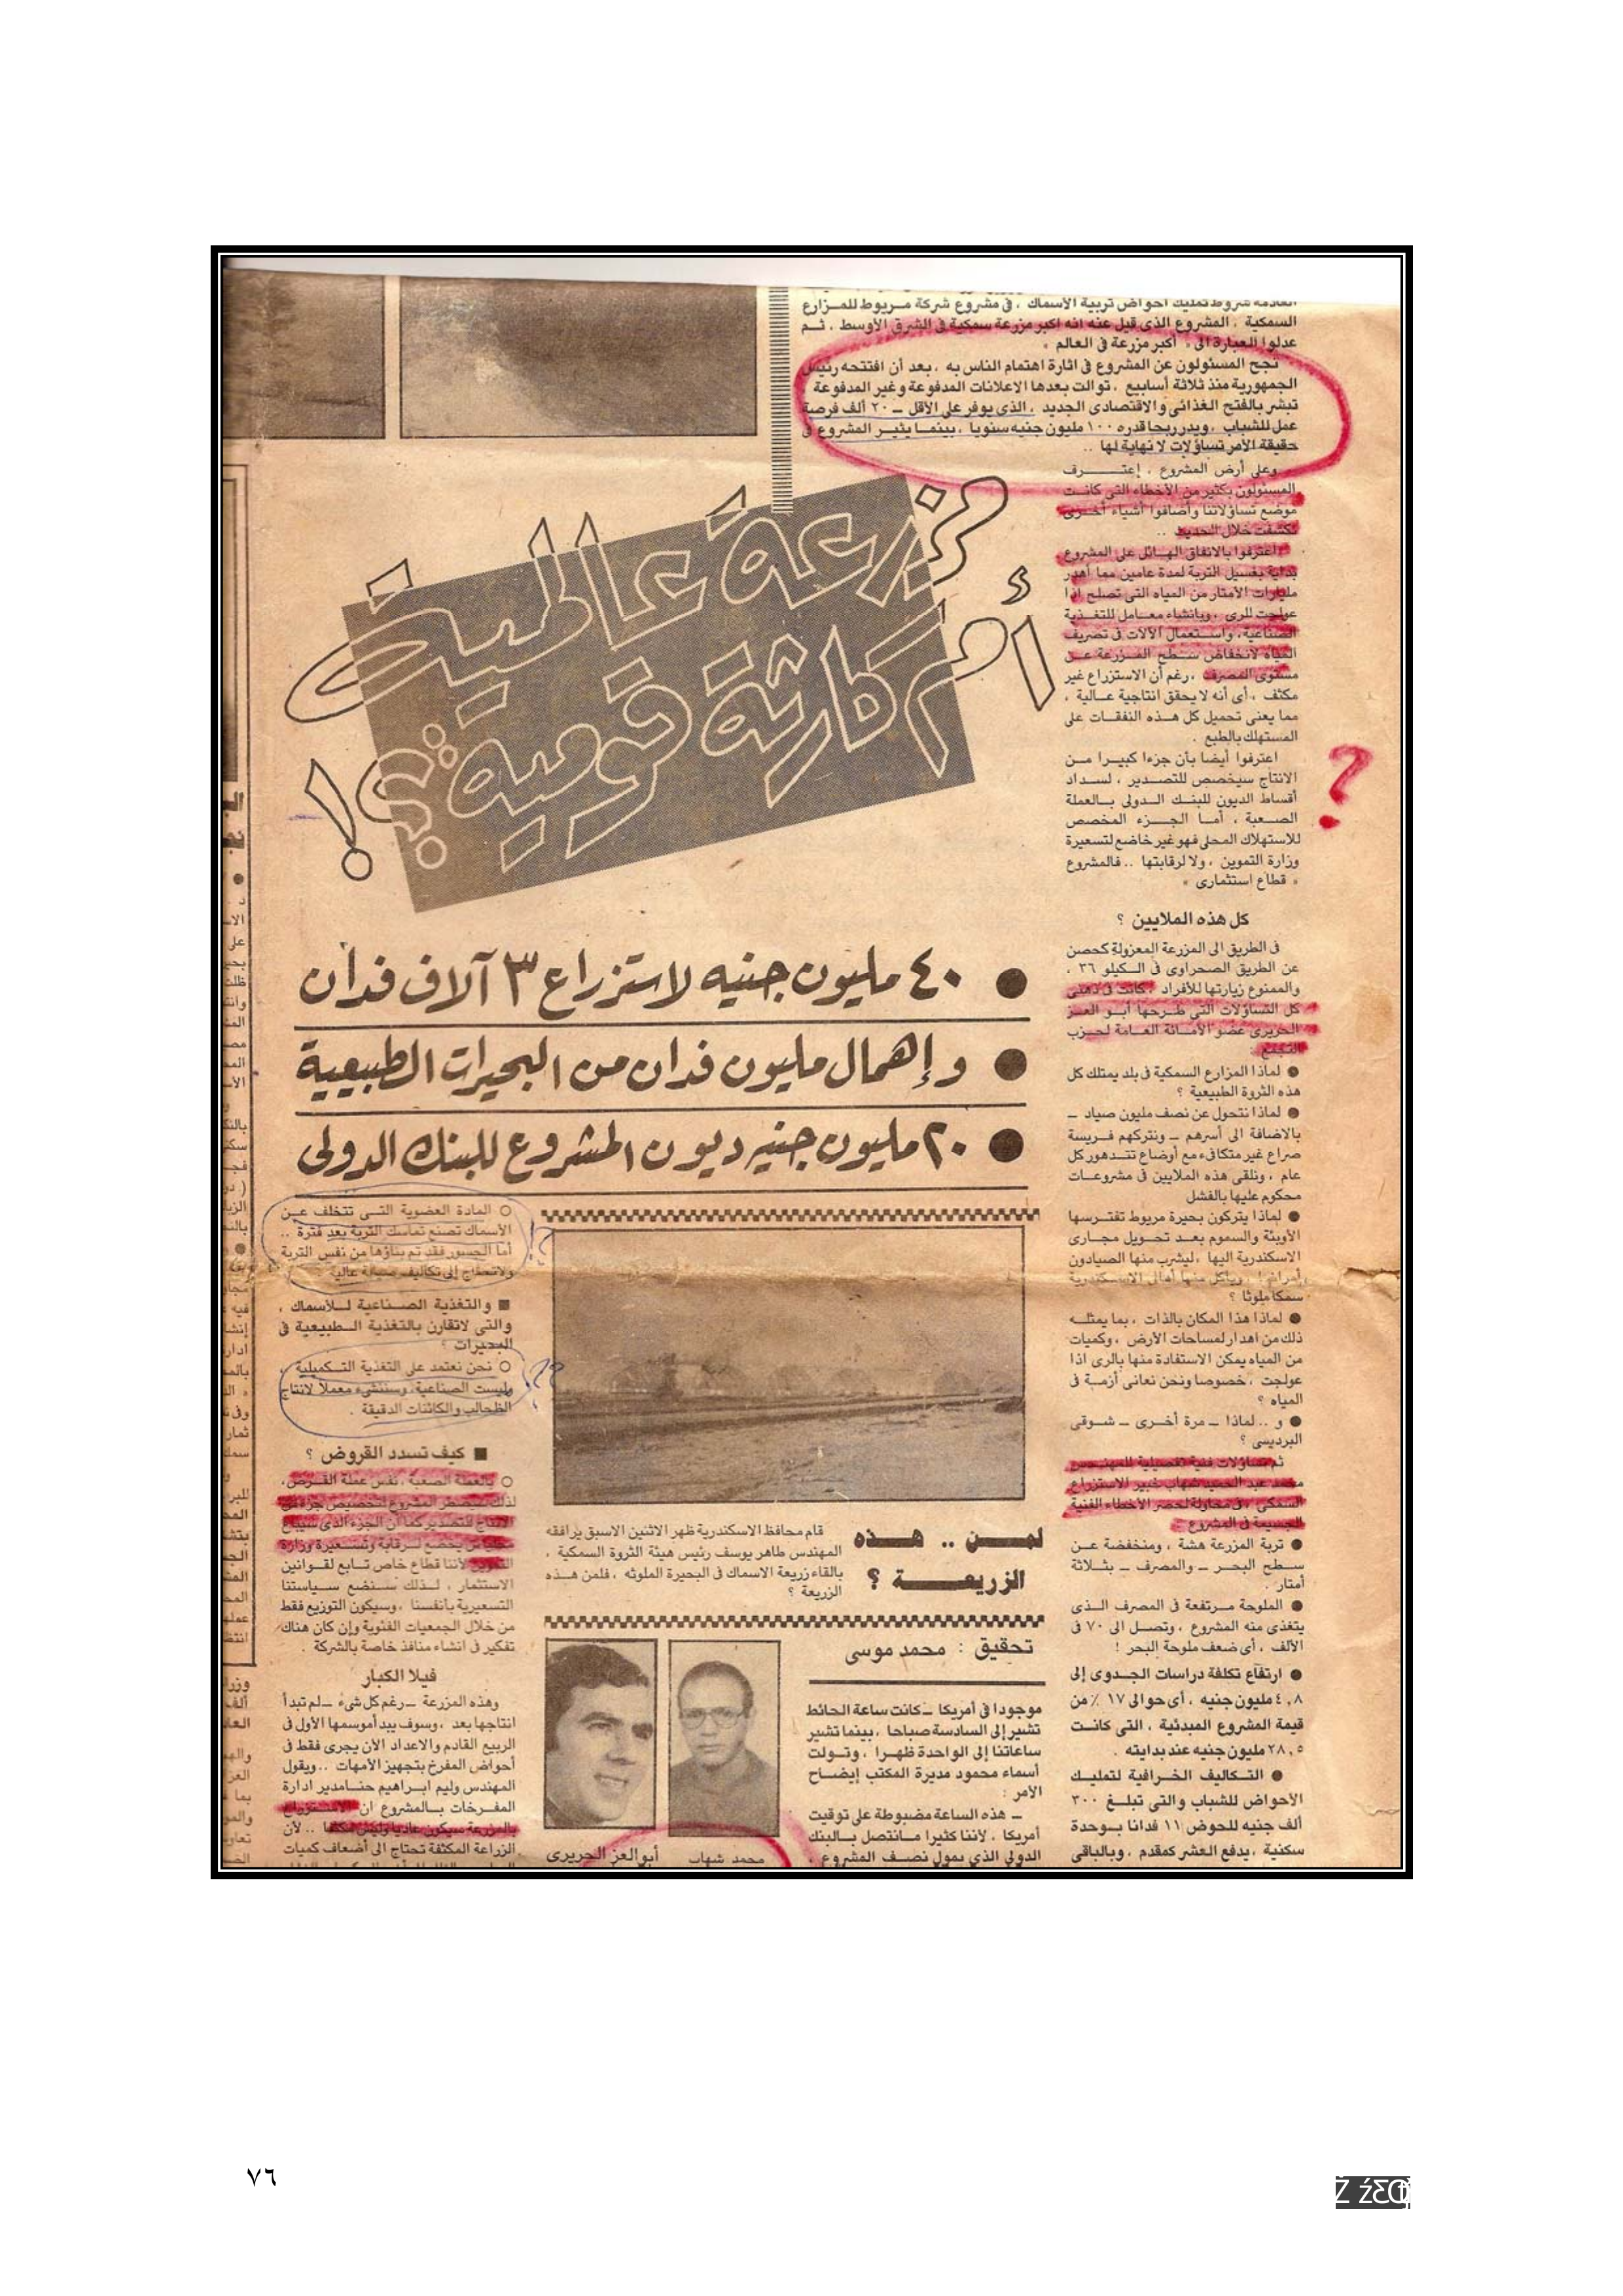 السمكية ، المشروع الذى قيل عنه انه اكبر مزرعة سمكية فى الشرق الأوسط ، ثم
عدلوا العبارة الى « أكبر مزرعة فى العالم »
نجح المسئولون عن المشروع فى اثارة اهتمام الناس به ، بعد أن افتتحه رئيس
الجمهورية منذ ثلاثة أسابيع ، توالت بعدها الاعلانات المدفوعة وغير المدفوعة
تبشر بالفتح الغذائى والاقتصادى الجديد ، الذى يوفر على الأقل ــ ٢٠ ألف فرصة
عمل للشباب ، ويدر ربحا قدره ١٠٠ مليون جنيه سنويا ، بينما يثير المشروع فى
حقيقة الأمر تساؤلات لا نهاية لها ..
وعلى أرض المشروع ، إعترف
المسئولون بكثير من الأخطاء التى كانت
موضع تساؤلاتنا وأضافوا أشياء أخرى
تكشفت خلال الحديث ..
اعترفوا بالانفاق الهائل على المشروع
بداية بغسيل التربة لمدة عامين مما أهدر
مليارات الأمتار من المياه التى تصلح اذا
عولجت للرى ، وبانشاء معامل للتغذية
الصناعية، واستعمال الآلات فى تصريف
المياه لانخفاض سطح المزرعة عن
مستوى المصرف ، رغم أن الاستزراع غير
مكثف ، أى أنه لا يحقق انتاجية عالية ،
مما يعنى تحميل كل هذه النفقات على
المستهلك بالطبع .
اعترفوا أيضا بأن جزءا كبيرا من
الانتاج سيخصص للتصدير ، لسداد
أقساط الديون للبنك الدولى بالعملة
الصعبة ، أما الجزء المخصص
للاستهلاك المحلى فهو غير خاضع لتسعيرة
وزارة التموين ، ولا لرقابتها .. فالمشروع
« قطاع استثمارى »
كل هذه الملايين ؟
فى الطريق الى المزرعة المعزولة كحصن
عن الطريق الصحراوى فى الكيلو ٣٦ ،
والممنوع زيارتها للأفراد ، كانت فى ذهنى
كل التساؤلات التى طرحها أبو العز
الحريرى عضو الأمانة العامة لحزب
التجمع :
● لماذا المزارع السمكية فى بلد يمتلك كل
هذه الثروة الطبيعية ؟
● لماذا نتحول عن نصف مليون صياد ــ
بالاضافة الى أسرهم ــ ونتركهم فريسة
صراع غير متكافىء مع أوضاع تتدهور كل
عام ، ونلقى هذه الملايين فى مشروعات
محكوم عليها بالفشل
● لماذا يتركون بحيرة مريوط تفترسها
الأوبئة والسموم بعد تحويل مجارى
الاسكندرية اليها ، ليشرب منها الصيادون
أمراضا ، ويأكل منها أهالى الاسكندرية
سمكا ملوثا ؟
● لماذا هذا المكان بالذات ، بما يمثله
ذلك من اهدار لمساحات الأرض ، وكميات
من المياه يمكن الاستفادة منها بالرى اذا
عولجت ، خصوصا ونحن نعانى أزمة فى
المياه ؟
● و .. لماذا ــ مرة أخرى ــ شوقى
البرديسى ؟
ثم تساؤلات فنية تفصيلية للمهندس
محمد عبد الحميد شهاب خبير الاستزراع
السمكى ، فى محاولة لحصر الأخطاء الفنية
الجسيمة فى المشروع :
● تربة المزرعة هشة ، ومنخفضة عن
سطح البحر ــ والمصرف ــ بثلاثة
أمتار .
● الملوحة مرتفعة فى المصرف الذى
يتغذى منه المشروع ، وتصل الى ٧٠ فى
الألف ، أى ضعف ملوحة البحر !
● ارتفاع تكلفة دراسات الجدوى إلى
٤,٨ مليون جنيه ، أى حوالى ١٧ ٪ من
قيمة المشروع المبدئية ، التى كانت
٢٨,٥ مليون جنيه عند بدايته .
● التكاليف الخرافية لتمليك
الأحواض للشباب والتى تبلغ ٣٠٠
ألف جنيه للحوض ١١ فدانا بوحدة
سكنية ، يدفع العشر كمقدم ، وبالباقى
مزرعة عالمية
أم كارثة قومية ؟!
● ٤٠ مليون جنيه لاستزراع ٣ آلاف فدان
● وإهمال مليون فدان من البحيرات الطبيعية
● ٢٠ مليون جنيه ديون المشروع للبنك الدولى
لمن .. هذه
الزريعة ؟
قام محافظ الاسكندرية ظهر الاثنين الاسبق يرافقه
المهندس طاهر يوسف رئيس هيئة الثروة السمكية ،
بالقاء زريعة الاسماك فى البحيرة الملوثه ، فلمن هذه
الزريعة ؟
تحقيق : محمد موسى
موجودا فى أمريكا ــ كانت ساعة الحائط
تشير إلى السادسة صباحا ، بينما تشير
ساعاتنا إلى الواحدة ظهرا ، وتولت
أسماء محمود مديرة المكتب إيضاح
الأمر :
ــ هذه الساعة مضبوطة على توقيت
أمريكا ، لأننا كثيرا ما نتصل بالبنك
الدولى الذى يمول نصف المشروع ،
محمد شهاب
أبو العز الحريرى
○ المادة العضوية التى تتخلف عن
الأسماك تصنع تماسك التربة بعد فترة ..
أما الجسور فقد تم بناؤها من نفس التربة
ولا تحتاج إلى تكاليف صيانة عالية
■ والتغذية الصناعية للأسماك ،
والتى لا تقارن بالتغذية الطبيعية فى
البحيرات ؟
○ نحن نعتمد على التغذية التكميلية
وليست الصناعية، وسننشىء معملا لانتاج
الطحالب والكائنات الدقيقة .
■ كيف تسدد القروض ؟
○ بالعملة الصعبة ، نفس عملة القرض،
لذلك سيضطر المشروع لتخصيص جزء من
الانتاج للتصدير كما أن الجزء الذى سيباع
محليا لن يخضع لرقابة وتسعيرة وزارة
التموين لأننا قطاع خاص تابع لقوانين
الاستثمار ، لذلك سنضع سياستنا
التسعيرية بأنفسنا ، وسيكون التوزيع فقط
من خلال الجمعيات الفئوية وإن كان هناك
تفكير فى انشاء منافذ خاصة بالشركة .
فيلا الكبار
وهذه المزرعة ــ رغم كل شىء ــ لم تبدأ
انتاجها بعد ، وسوف يبدأ موسمها الأول فى
الربيع القادم والاعداد الآن يجرى فقط فى
أحواض المفرخ بتجهيز الأمهات .. ويقول
المهندس وليم ابراهيم حنا مدير ادارة
المفرخات بالمشروع ان الاستزراع
بالمزرعة سيكون عاديا وليس مكثفا .. لأن
الزراعة المكثفة تحتاج الى أضعاف كميات
٧٦